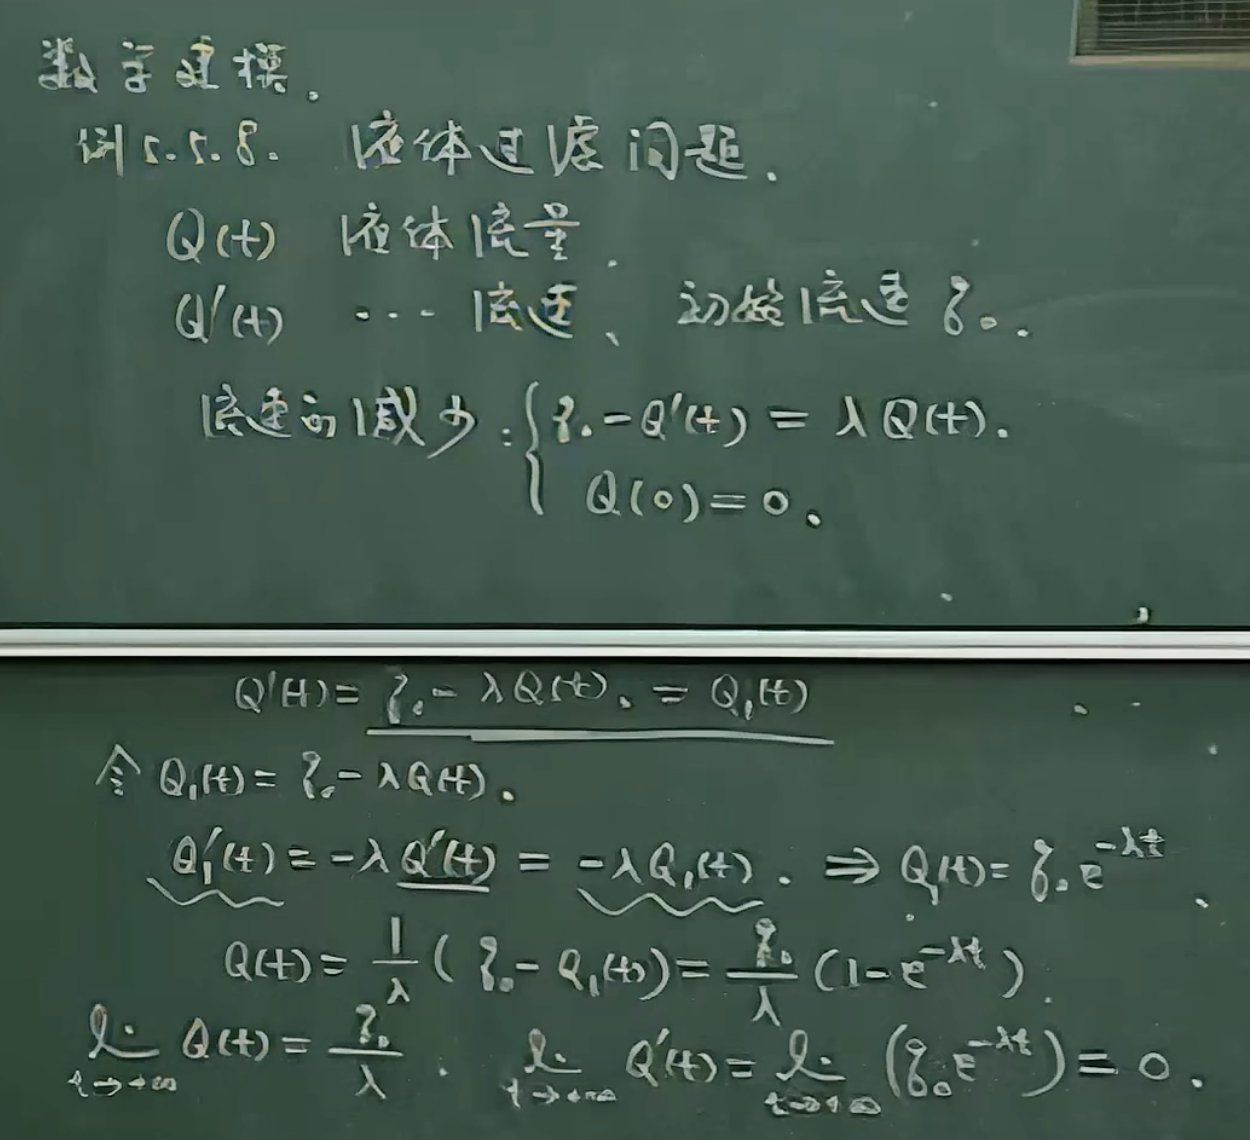 数学建模.
例5.5.8. 液体过滤问题.
Q(t) 液体流量.
Q'(t) ... 流速, 初始流速 q₀.
流速的减少: { q₀ - Q'(t) = λQ(t).
Q(0) = 0.
Q'(t) = q₀ - λQ(t). = Q₁(t)
令 Q₁(t) = q₀ - λQ(t).
Q₁'(t) = -λQ'(t) = -λQ₁(t). ⇒ Q₁(t) = q₀e^{-λt}
Q(t) = \frac{1}{λ}(q₀ - Q₁(t)) = \frac{q₀}{λ}(1 - e^{-λt}).
lim_{t→+∞} Q(t) = \frac{q₀}{λ}. lim_{t→+∞} Q'(t) = lim_{t→+∞} (q₀e^{-λt}) = 0.